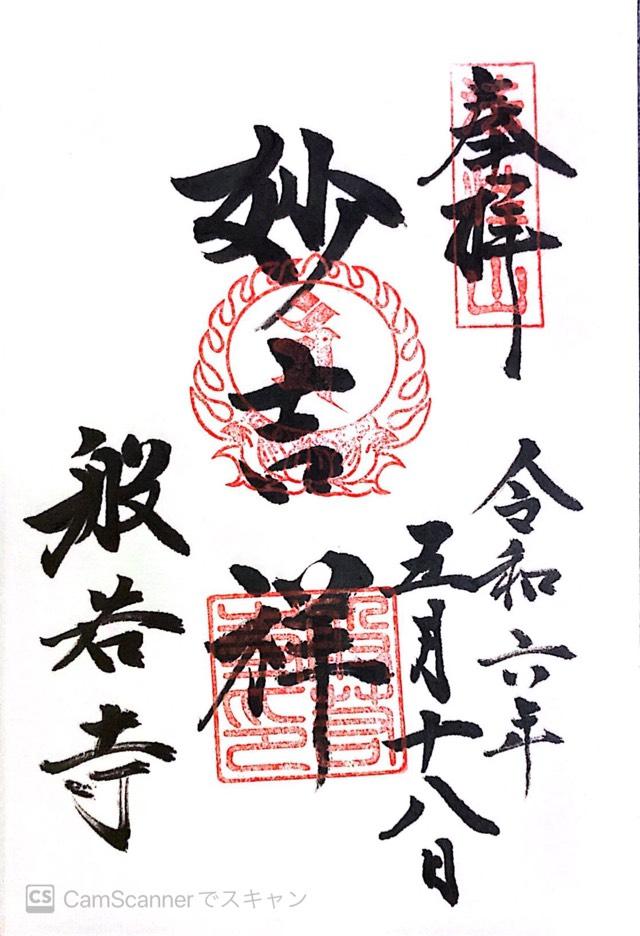 奉拝
令和六年
五月十八日
妙吉祥
般若寺
CS CamScannerでスキャン